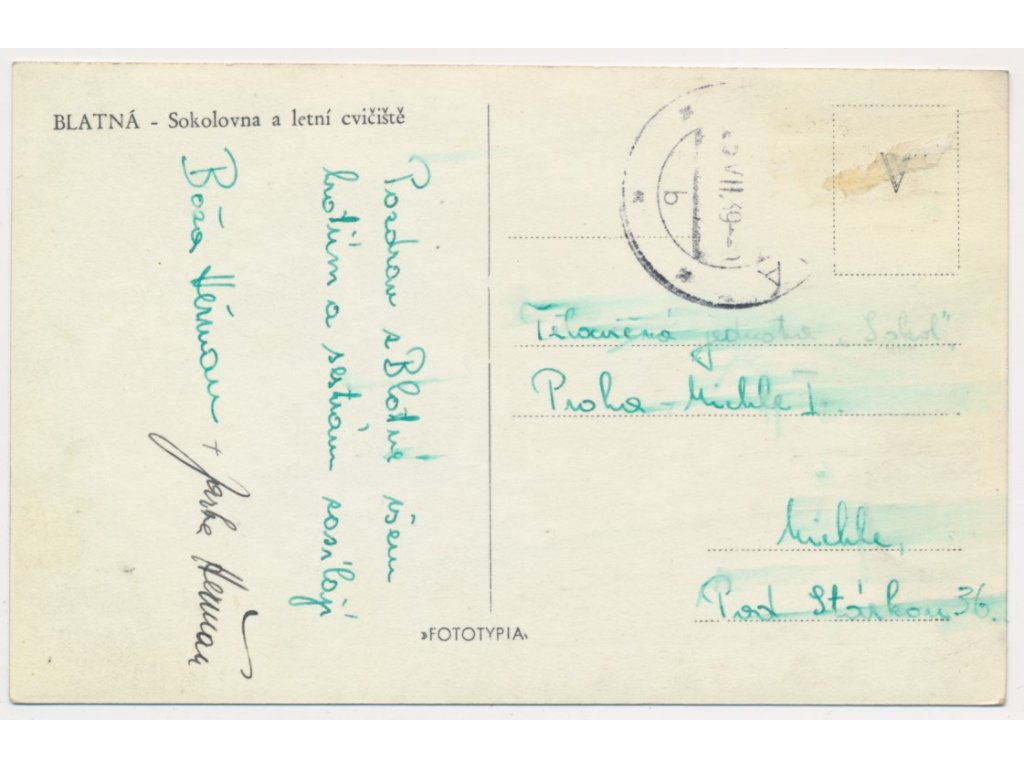 BLATNÁ - Sokolovna a letní cvičiště
Pozdrav z Blatné všem
bratřím a sestrám zasílají
Boža Heřman + Jarka Heřman
b
VII.39
V
Tělocvičná jednota „Sokol“,
Praha - Michle I.
Michle,
Pod Stárkou 36.
»FOTOTYPIA«